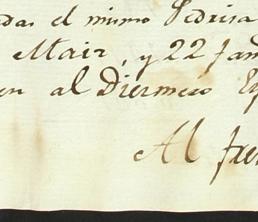 das el mismo Pedrisa
Mair, y 22 fan
en al Diermero
Al